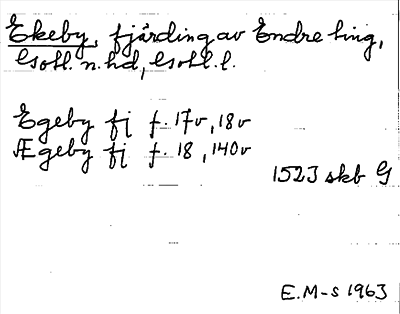 Ekeby, fjärding av Endre ting,
Gotl. n. hd, Gotl. l.
Egeby fj f. 17v, 18v
Ægeby fj f. 18, 140v
1523 skb G
E.M-s 1963